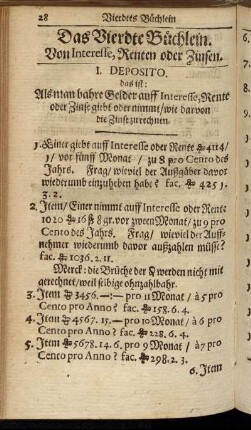 28 Vierdtes Büchlein
Das Vierdte Büchlein.
Von Interesse, Renten oder Zinsen.
I. DEPOSITO.
das ist:
Als man bahre Gelder auff Interesse, Rente
oder Zinß giebt oder nimmt / wie darvon
die Zinß zurechnen.
1. Einer giebt auff Interesse oder Rente 4114/
1/ vor fünff Monat / zu 8 pro Cento des
Jahrs. Frag / wieviel der Außgäber davor
wiederumb einzuheben habe? fac. 425 1.
3. 2.
2. Item / Einer nimmt auff Interesse oder Rente
1020 16 ß 8 gr. vor zween Monat / zu 9 pro
Cento des Jahrs. Frag / wieviel der Auff-
nehmer wiederumb davor außzahlen müsse?
fac. 1036. 2. 11.
Merck: die Brüche der werden nicht mit
gerechnet / weil selbige ohnzahlbahr.
3. Item 3456.—: pro 11 Monat / à 5 pro
Cento pro Anno? fac. 158. 6. 4.
4. Item 4567. 15.—: pro 10 Monat / à 6 pro
Cento pro Anno? fac. 228. 6. 4.
5. Item 5678. 14. 6. pro 9 Monat / à 7 pro
Cento pro Anno? fac. 298. 2. 3.
6. Item